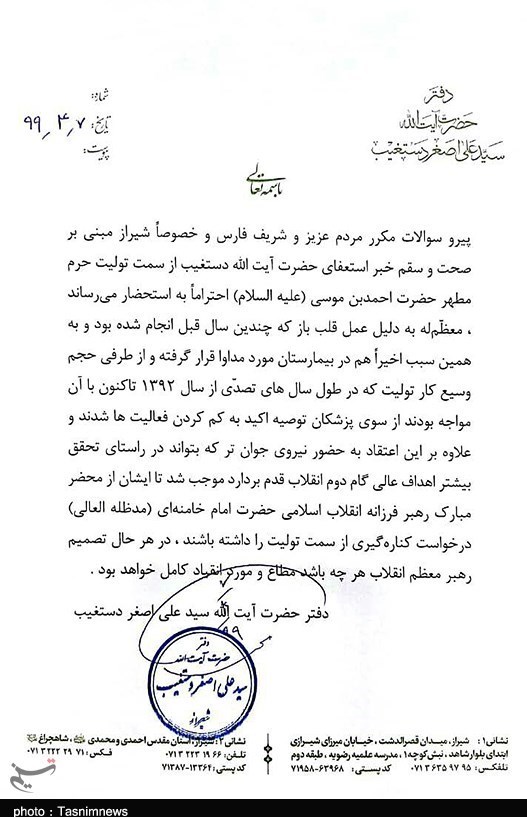 دفتر
حضرت آیت الله
سید علی اصغر دستغیب
شماره:
تاریخ: ۹۹٫۴٫۷
پیوست:
باسمه تعالی
پیرو سوالات مکرر مردم عزیز و شریف فارس و خصوصاً شیراز مبنی بر
صحت و سقم خبر استعفای حضرت آیت الله دستغیب از سمت تولیت حرم
مطهر حضرت احمدبن موسی (علیه السلام) احتراماً به استحضار می‌رساند
، معظّم‌له به دلیل عمل قلب باز که چندین سال قبل انجام شده بود و به
همین سبب اخیراً هم در بیمارستان مورد مداوا قرار گرفته و از طرفی حجم
وسیع کار تولیت که در طول سال های تصدّی از سال ۱۳۹۲ تاکنون با آن
مواجه بودند از سوی پزشکان توصیه اکید به کم کردن فعالیت ها شدند و
علاوه بر این اعتقاد به حضور نیروی جوان تر که بتواند در راستای تحقق
بیشتر اهداف عالی گام دوم انقلاب قدم بردارد موجب شد تا ایشان از محضر
مبارک رهبر فرزانه انقلاب اسلامی حضرت امام خامنه‌ای (مدظله العالی)
درخواست کناره‌گیری از سمت تولیت را داشته باشند ، در هر حال تصمیم
رهبر معظم انقلاب هر چه باشد مطاع و مورد انقیاد کامل خواهد بود .
دفتر حضرت آیت الله سید علی اصغر دستغیب
۹۹
دفتر
حضرت آیت الله
سید علی اصغر دستغیب
شیراز
نشانی۱: شیراز، میدان قصرالدشت ، خیابان میرزای شیرازی
ابتدای بلوار شاهد ، نبش کوچه ۱ ، مدرسه علمیه رضویه ، طبقه دوم
تلفکس: ۹۵ ۹۷ ۳۶۳۵ ۰۷۱ کد پستی: ۶۳۹۶۸-۷۱۹۵۸
نشانی۲: شیراز، آستان مقدس احمدی و محمدی، شاهچراغ
تلفن: ۶۶ ۱۹ ۳۲۲۳ ۰۷۱ فکس: ۷۱ ۲۹ ۳۲۲۲ ۰۷۱
کد پستی: ۱۳۳۶۴-۷۱۳۸۷
تسنیم
photo : Tasnimnews